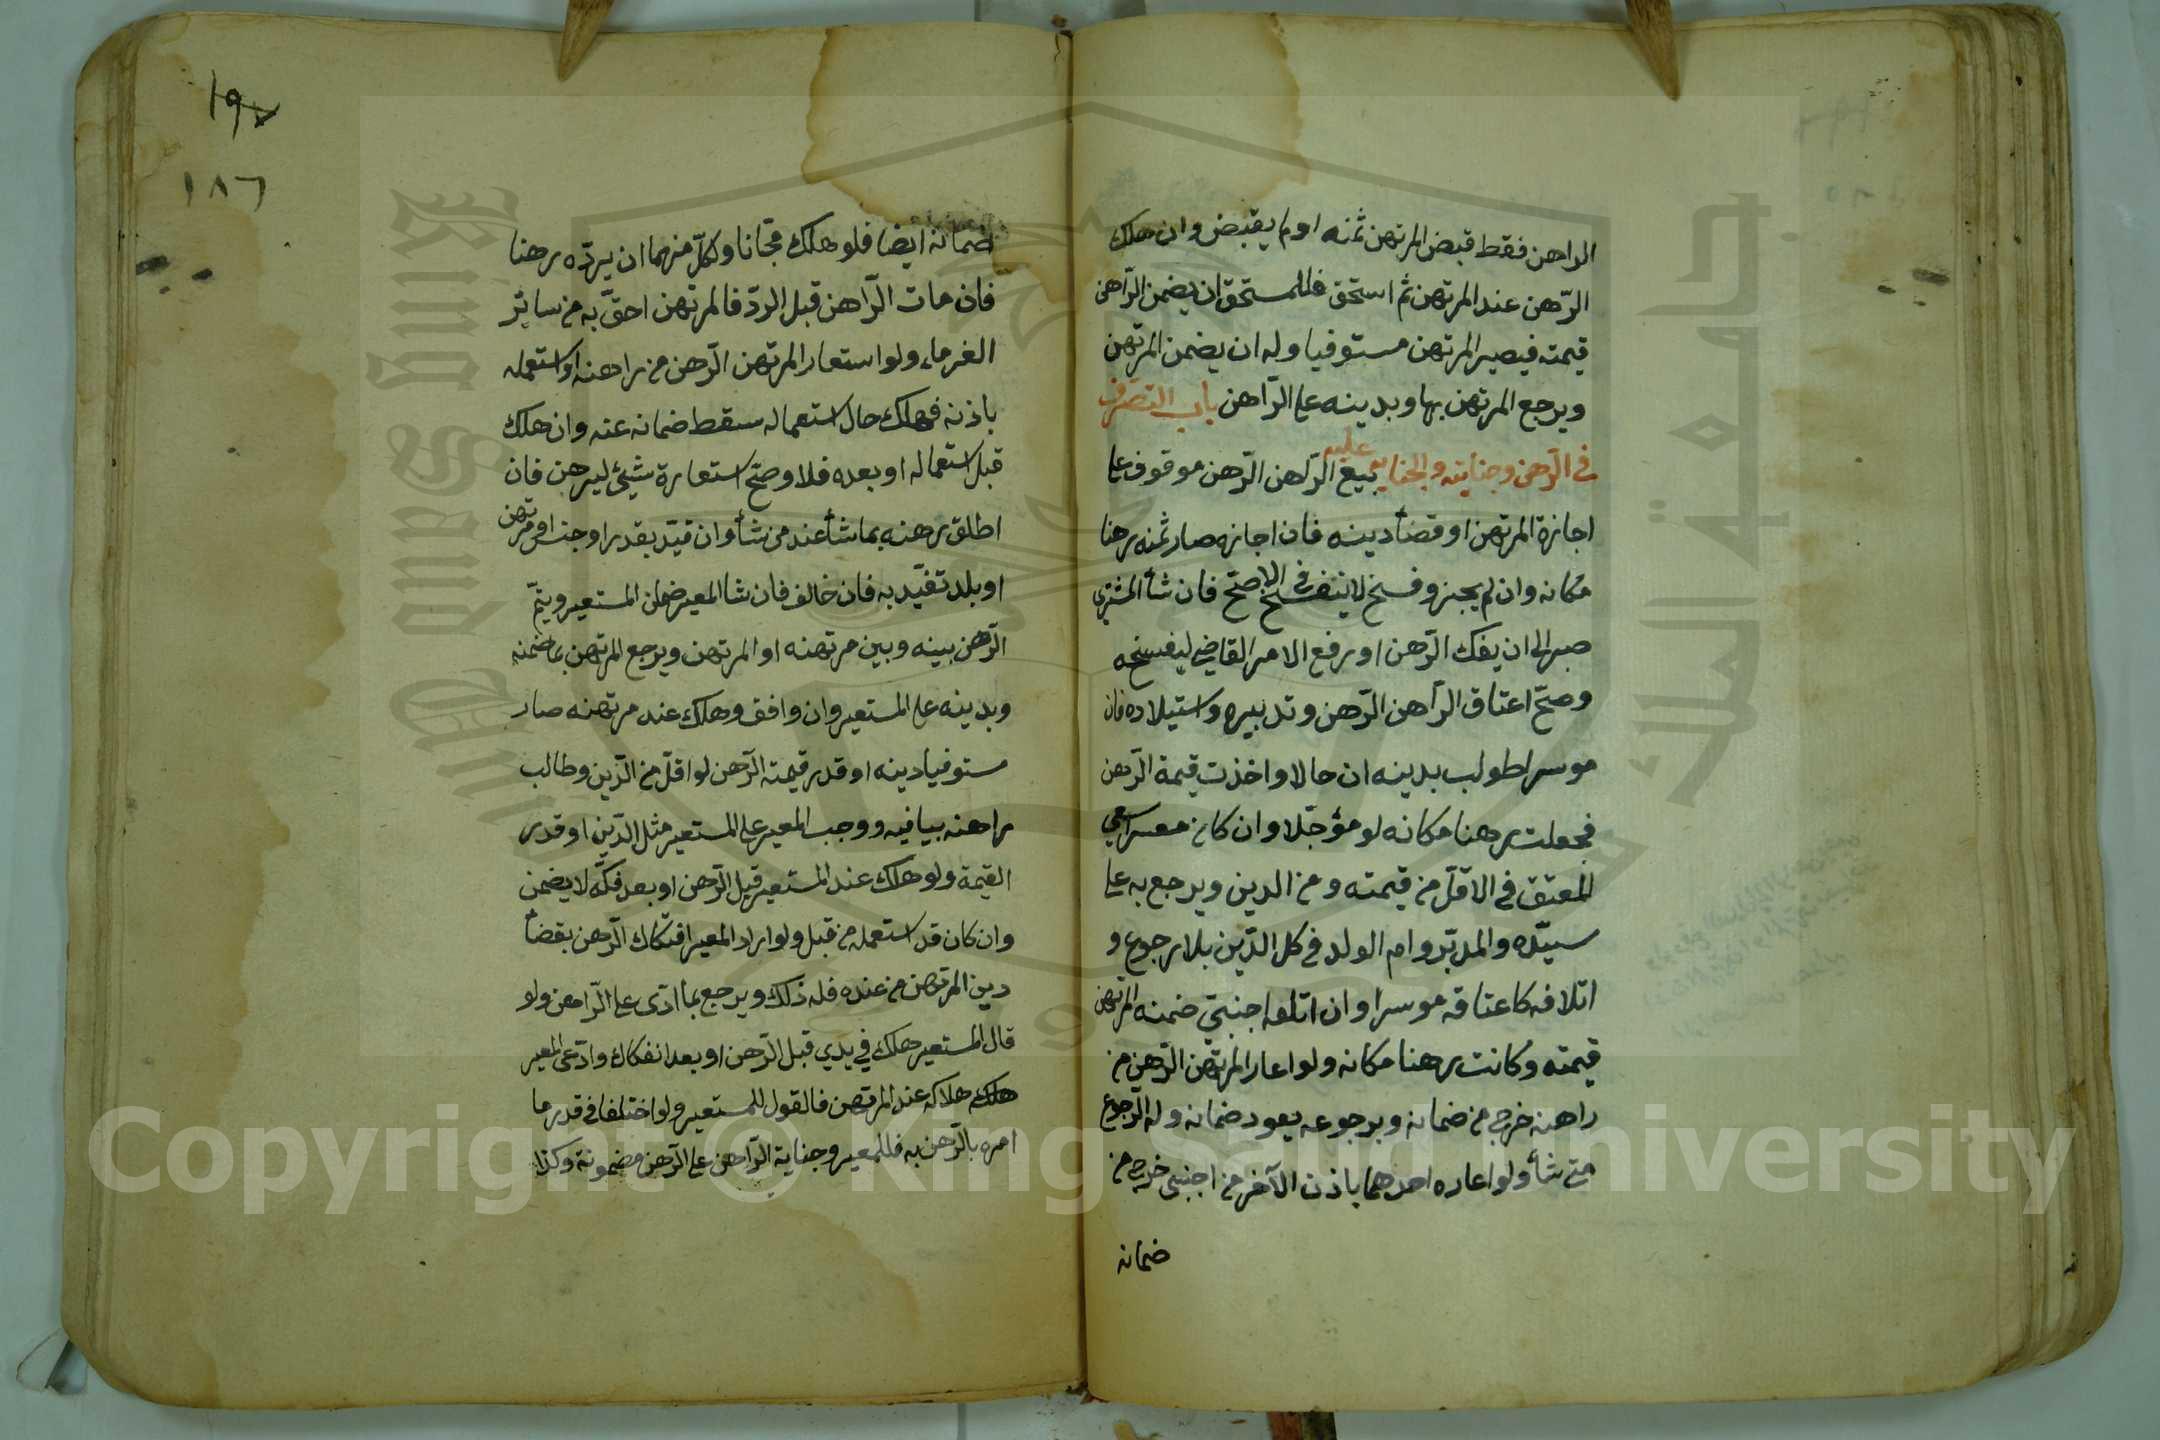 الراهن فقط قبض المرتهن ثمنه اولم يقبض وان هلك
الرّهن عند المرتهن ثم استحق فللمستحق ان يضمن الرّاهن
قيمته فيصير المرتهن مستوفيا وله ان يضمن المرتهن
ويرجع المرتهن بها وبدينه على الرّاهن باب التصرّف
في الرّهن وجنايته والجناية عليه بيع الرّاهن الرّهن موقوف على
اجازة المرتهن او قضأ دينه فان اجازه صار ثمنه رهنا
مكانه وان لم يجز وفسخ لا ينفسخ في الاصحّ فان شأ المشتري
صبر الى ان يفك الرّهن او رفع الامر القاضي ليفسخه
وصحّ اعتاق الرّاهن الرّهن وتدبيره واستيلاده فان
موسرا طولب بدينه ان حالا واخذت قيمة الرّهن
فجعلت رهنا مكانه لو مؤجّلا وان كان معسرا سعى
المعتق في الاقلّ من قيمته ومن الدين ويرجع به على
سيّده والمدبّر وام الولد في كل الدّين بلا رجوع و
اتلافه كاعتاقه موسرا وان اتلفه اجنبيّ ضمنه المرتهن
قيمته وكانت رهنا مكانه ولو اعار المرتهن الرّهن من
راهنه خرج من ضمانه وبرجوعه يعود ضمانه وله الرّجوع
متى شأ ولو اعاره احدهما باذن الآخر من اجنبي خرج من
ضمانه
١٩٨
١٨٦
ضمانه ايضا فلو هلك مجّانا ولكلّ منهما ان يردّه رهنا
فان مات الرّاهن قبل الردّ فالمرتهن احقّ به من سائر
الغرماء ولو استعار المرتهن الرّهن من راهنه او استعمله
باذنه فهلك حال استعماله سقط ضمانه عنه وان هلك
قبل استعماله او بعده فلا وصحّ استعارة شيئ ليرهن فان
اطلق رهنه بما شأ عند من شأ وان قيّد بقدر او جنس او مرتهن
او بلد تقيّد به فان خالف فان شا المعير ضمن المستعير ويتمّ
الرّهن بينه وبين مرتهنه او المرتهن ويرجع المرتهن بما ضمنه
وبدينه على المستعير وان وافق وهلك عند مرتهنه صار
مستوفيا دينه او قدر قيمته الرّهن لو اقلّ من الدّين وطالب
راهنه بباقيه ووجب المعير على المستعير مثل الدّين او قدر
القيمة ولو هلك عند المستعير قبل الرّهن او بعد فكّه لا يضمن
وان كان قد استعمله من قبل ولو اراد المعير افتكاك الرّهن بقضأ
دين المرتهن من عنده فله ذلك ويرجع بما ادّى على الرّاهن ولو
قال المستعير هلك في يدي قبل الرّهن او بعد انفكاك وادّعى المعير
هلاكه عند المرتهن فالقول للمستعير ولو اختلفا في قدر ما
امره بالرّهن به فللمعير وجناية الرّاهن على الرّهن مضمونة وكذا
Copyright © King Saud University
جامعة الملك سعود
King Saud University